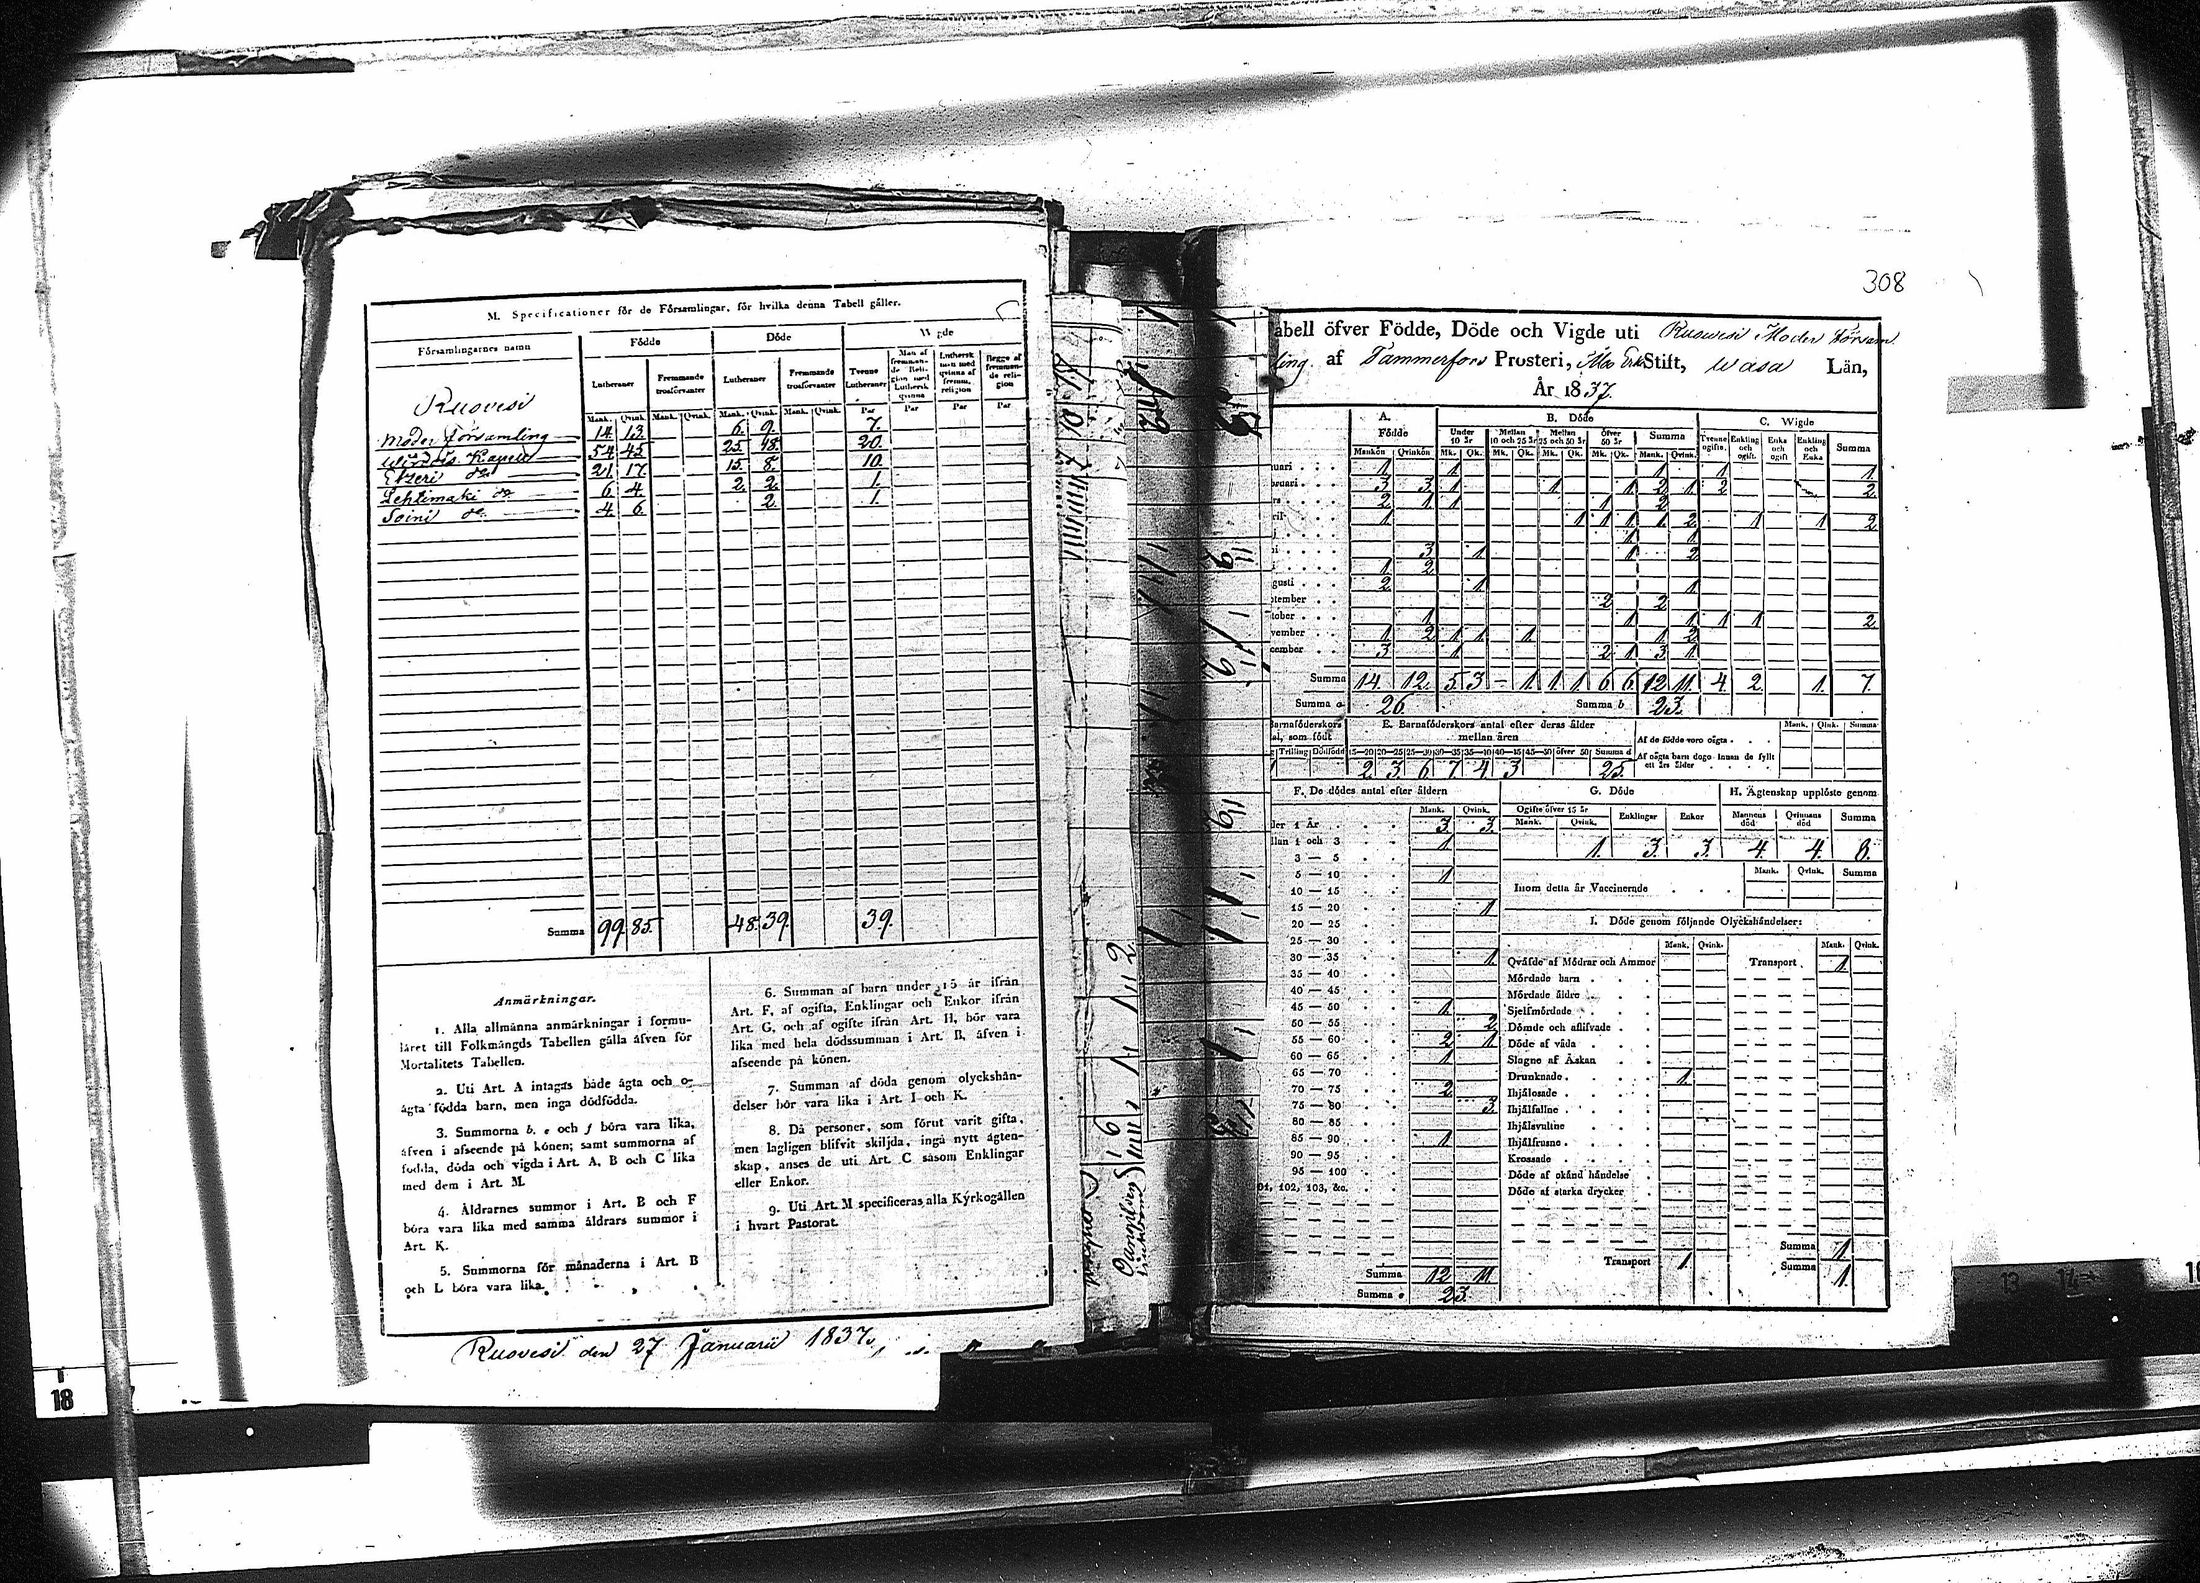 M. Specificationer för de Församlingar, för hvilka denna Tabell gäller.
Församlingarnes namn
Födde
Döde
Wigde
Lutheraner
Fremmande trosförvanter
Lutheraner
Fremmande trosförvanter
Tvenne Lutheraner
Man af fremman-de Reli-gion med Luthersk qvinna
Luthersk man med qvinna af fremm. religion
Begge af fremman-de reli-gion
Mank. Qvink. Mank. Qvink. Mank. Qvink. Mank. Qvink. Par Par Par Par
Ruovesi
Moder församling 14. 13. 6. 9. 7.
Wirdois Kapell 54. 45. 25. 18. 20.
Etzeri do 21. 17. 15. 8. 10.
Lehtimäki do 6. 4. 2. 2. 1.
Soini do 4. 6. 2. 1.
Summa 99. 85. 48. 39. 39.
Anmärkningar.
1. Alla allmänna anmärkningar i formu-
läret till Folkmängds Tabellen gälla äfven för
Mortalitets Tabellen.
2. Uti Art. A intagas både ägta och o-
ägta födda barn, men inga dödfödda.
3. Summorna b, e och f böra vara lika,
äfven i afseende på könen; samt summorna af
födda, döda och vigda i Art. A, B och C lika
med dem i Art. M.
4. Åldrarnes summor i Art. B och F
böra vara lika med samma åldrars summor i
Art. K.
5. Summorna för månaderna i Art. B
och L böra vara lika.
6. Summan af barn under 15 år ifrån
Art. F, af ogifta, Enklingar och Enkor ifrån
Art. G, och af ogifte ifrån Art. H, bör vara
lika med hela dödssumman i Art. B, äfven i
afseende på könen.
7. Summan af döda genom olyckshän-
delser bör vara lika i Art. I och K.
8. Då personer, som förut varit gifta,
men lagligen blifvit skiljda, ingå nytt ägten-
skap, anses de uti Art. C såsom Enklingar
eller Enkor.
9. Uti Art. M specificeras alla Kyrkogällen
i hvart Pastorat.
Ruovesi den 27 Januarii 1837.
308
abell öfver Födde, Döde och Vigde uti Ruovesi Moder Försam
ling. af Tammerfors Prosteri, Åbo Erke Stift, Wasa Län,
År 1837.
A. Födde
B. Döde
C. Wigde
Under 10 år
Mellan 10 och 25 år
Mellan 25 och 50 år
öfver 50 år
Summa
Tvenne ogifte.
Enkling och ogift.
Enka och ogift
Enkling och Enka
Summa
Mankön Qvinkön Mk. Qk. Mk. Qk. Mk. Qk. Mk. Qk. Mank. Qvink.
uari 1 1 1 1 1.
bruari 3 3 1 1 1 2 1 2 2
rs 2 1 1 1 2
ril 1 1 1 1 1 2 1 1 2
j 1 1
i 3 1 1 2
i 1 2
gusti 2 1 1
tember 2 2
tober 1 1 1 1 1 2
vember 1 2 1 1 1 1 2
cember 3 1 2 1 3 1
Summa 14. 12. 5 3 – 1. 1. 1 6 6 12 11. 4 2 1. 7.
Summa a 26.
Summa b 23.
Barnaföderskors
al, som födt
Trilling Dödfödd
E. Barnaföderskors antal efter deras ålder
mellan åren
15—20 20—25 25—30 30—35 35—40 40—45 45—50 öfver 50 Summa d
2. 3. 6 7 4 3 25.
Mank. Qink. Summa
Af de födde voro oägta
Af oägta barn dogo innan de fyllt
ett års ålder
F. De dödes antal efter åldern
Mank. Qvink.
der 1 År 3. 3.
llan 1 och 3 1
3 — 5
5 — 10 1
10 — 15
15 — 20 1
20 — 25
25 — 30
30 — 35 1.
35 — 40
40 — 45
45 — 50 1.
50 — 55 2
55 — 60 2 1.
60 — 65 1
65 — 70
70 — 75 2
75 — 80 3.
80 — 85
85 — 90 1
90 — 95
95 — 100
01, 102, 103, &c.
Summa 12 11.
Summa e 23.
G. Döde
Ogifte öfver 15 år
Mank. Qvink. Enklingar Enkor
1. 3. 3.
H. Ägtenskap upplöste genom
Mannens död Qvinnans död Summa
4. 4. 8.
Mank. Qvink. Summa
Inom detta år Vaccinerade
I. Döde genom följande Olyckshändelser:
Mank. Qvink. Mank. Qvink.
Qväfde af Mödrar och Ammor Transport 1
Mördade barn
Mördade äldre
Sjelfmördade
Dömde och aflifvade
Döde af våda
Slagne af Åskan
Drunknade 1
Ihjälosade
Ihjälfallne
Ihjälsvultne
Ihjälfrusne
Krossade
Döde af okänd händelse
Döde af starka drycker
Transport 1
Summa 1
Summa 1.
18